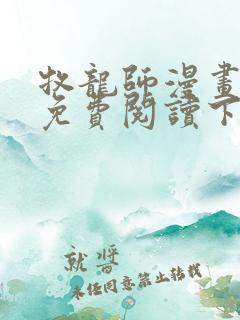 牧龍師漫畫
免費閱讀下
就將
未经同意禁止转载